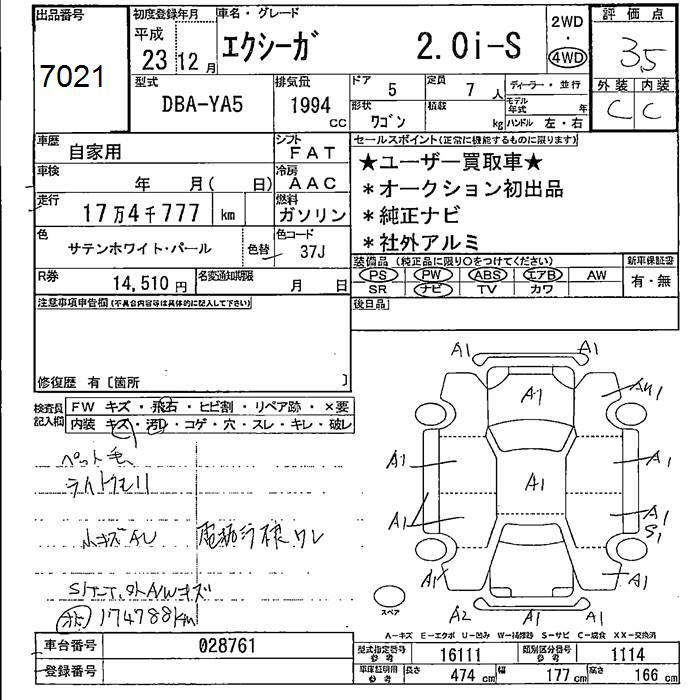 出品番号
7021
初度登録年月
平成
23 12月
車名・グレード
エクシーガ 2.0i-S
2WD
・
4WD
評価点
3.5
外装 内装
C C
型式
DBA-YA5
排気量
1994
CC
ドア
5
定員
7人
形状
ワゴン
積載
kg
ディーラー・並行
モデル年式 年
ハンドル 左・右
車歴
自家用
シフト
FAT
車検
年 月( 日)
冷房
AAC
走行
17万4千777 km
燃料
ガソリン
色
サテンホワイト・パール
色替
色コード
37J
R券
14,510円
名変通知期限
月 日
セールスポイント(正常に機能するものに限ります)
★ユーザー買取車★
*オークション初出品
*純正ナビ
*社外アルミ
装備品(純正品に限り○をつけてください)
新車保証書
PS PW ABS エアB AW
有・無
SR ナビ TV カワ
後日品
注意事項申告欄(不具合内容等は具体的に記入して下さい)
修復歴 有〔箇所 〕
検査員記入欄
FW キズ・飛石・ヒビ割・リペア跡・×要
内装 キズ・汚レ・コゲ・穴・スレ・キレ・破レ
ペット毛
ライトクモリ
小キズ
174788km
A1 A1
A1
A1 A1
A1
A1
A1
S1
A1 A1
A2 A1 A1
スペア
A-キズ E-エクボ U-凹み W-補修跡 S-サビ C-腐食 XX-交換済
車台番号
028761
登録番号
型式指定番号 参考
16111
類別区分番号 参考
1114
車庫証明用 参考
長さ 474cm
幅 177cm
高さ 166cm